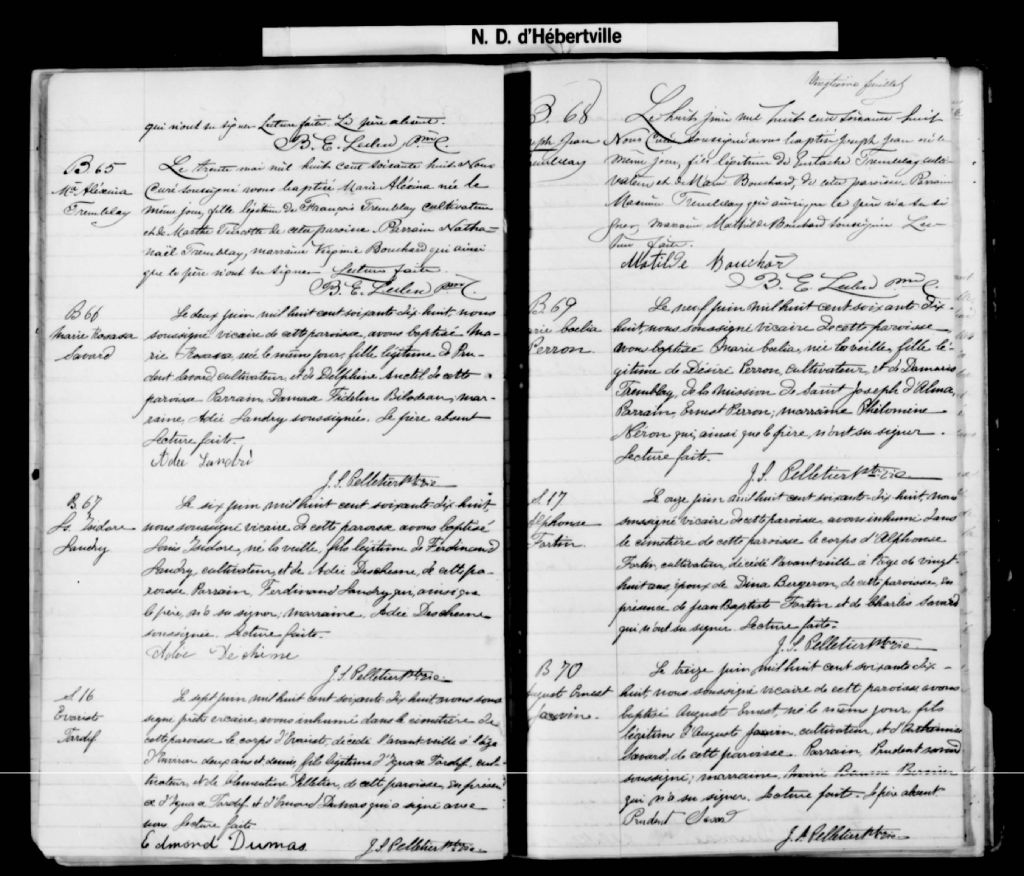 N. D. d'Hébertville
qui n'ont su signer. Lecture faite. Le père absent.
B. E. Leclerc ptre C.
B 65
Mie Alexina
Tremblay
Le trente mai mil huit cent soixante huit Nous
Curé soussigné avons baptisé Marie Alexina née le
même jour, fille légitime de François Tremblay cultivateur
et de Marthe Turcotte de cette paroisse. Parrain Natha-
naël Tremblay, marraine Virginie Bouchard qui ainsi
que le père n'ont su signer. Lecture faite.
B. E. Leclerc ptre C.
B 66
Marie Rosanna
Savard
Le deux juin mil huit cent soixante dix huit, nous
soussigné vicaire de cette paroisse, avons baptisé Ma-
rie née le même jour, fille légitime de Pru-
dent Savard cultivateur, et de Delphine Anctil de cette
paroisse. Parrain, Damase Fidelin Bilodeau, mar-
raine, Adée Landry soussignée. Le père absent
Lecture faite.
Adée Landri
J. S. Pelletier Ptre vic
B. 67
Ls. Isidore
Landry
Le six juin mil huit cent soixante dix huit,
nous soussigné vicaire de cette paroisse avons baptisé
Louis Isidore, né la veille, fils légitime de Ferdinand
Landry, cultivateur, et de Adée Deschesne, de cette pa-
roisse. Parrain, Ferdinand Landry qui, ainsi que
le père, n'a su signer, marraine, Adée Deschesne
soussignée. Lecture faite.
Adée Dechene
J. S. Pelletier Ptre vic
S. 16
Evariste
Tardif
Le sept juin mil huit cent soixante dix huit, nous sous
signé, prêtre vicaire, avons inhumé dans le cimetière de
cette paroisse le corps d'Evariste, décédé l'avant veille à l'âge
d'environ deux ans et demi, fils légitime d'Ignace Tardif, cul-
tivateur, et de Pelletier, de cette paroisse, en présen
ce d'Ignace Tardif et d'Edmond Dumas qui a signé avec
nous Lecture faite
Edmond Dumas
J. S. Pelletier Ptre vic
Vingtième feuillet
B. 68
Joseph Jean
Tremblay
Le huit juin mil huit cent soixante huit
Nous Curé soussigné avons baptisé Joseph Jean né le
même jour, fils légitime de Eustache Tremblay culti-
vateur et de Marie Bouchard, de cette paroisse. Parrain
Tremblay qui ainsi que le père n'a su si
gner, marraine Mathilde Bouchard soussignée Lec-
ture faite.
Matilde Bouchar
B. E. Leclerc ptre C.
B 69
Marie Coelia
Perron
Le neuf juin mil huit cent soixante dix-
huit, nous soussigné vicaire de cette paroisse
avons baptisé Marie Coelia, née la veille, fille lé-
gitime de Désiré Perron, cultivateur, et de Damaris
Tremblay, de la mission de Saint Joseph d'Alma,
Parrain, Ernest Perron; marraine Philomène
Néron qui, ainsi que le père, n'ont su signer.
Lecture faite.
J. S. Pelletier Ptre vic
S. 17
Alphonse
Fortin
Le onze juin mil huit cent soixante-dix huit, nous
soussigné vicaire de cette paroisse, avons inhumé dans
le cimetière de cette paroisse le corps d'Alphonse
Fortin, cultivateur, décédé l'avant veille à l'âge de vingt
huit ans, époux de Dina Bergeron, de cette paroisse, en
présence de Jean Baptiste Fortin et de Charles Savard
qui n'ont su signer. Lecture faite.
J. S. Pelletier Ptre vic
B 70
Auguste Ernest
Le treize juin mil huit cent soixante dix-
huit, nous soussigné vicaire de cette paroisse, avons
baptisé Auguste Ernest, né le même jour, fils
légitime d'Auguste cultivateur, et d'Arthémise
Savard, de cette paroisse. Parrain, Prudent Savard
soussigné; marraine, Bernier
qui n'a su signer. Lecture faite. Le père absent
Prudent Savard
J. S. Pelletier Ptre vic